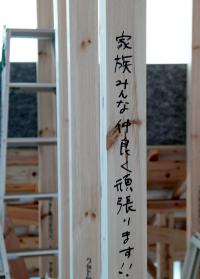 家族みんな仲良く頑張ります!!